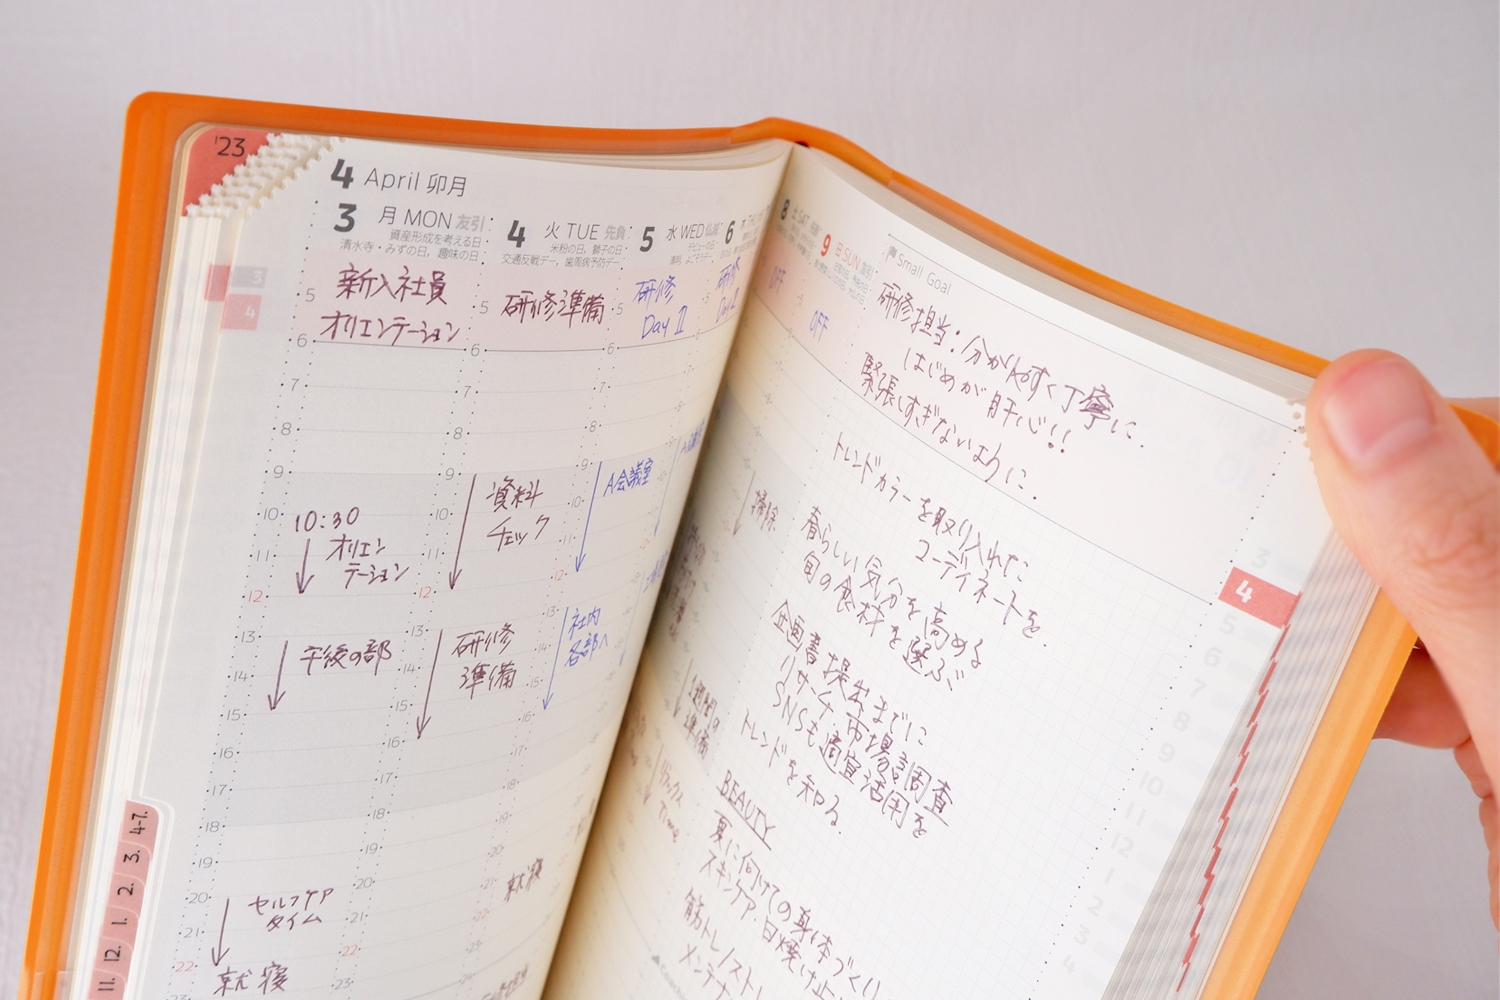 '23
4 April 卯月
3 月 MON 友引
資産形成を考える日
清水寺・みずの日, 趣味の日
4 火 TUE 先負
米粉の日, 獅子の日
交通反戦デー, 歯周病予防デー
5 水 WED 仏滅
デビューの日
6
新入社員
オリエンテーション
研修準備
研修
Day Ⅱ
研修
5
6
7
8
9
10
11
12
13
14
15
16
17
18
19
20
21
22
23
10:30
オリエン
テーション
午後の部
セルフケア
タイム
就寝
資料
チェック
研修
準備
A会議室
社内
各部へ
就寝
8 土 SAT
9 日 SUN
OFF
OFF
掃除
1週間の
準備
リラックス
Time
Small Goal
研修担当:分かりやすく丁寧に.
はじめが肝心!!
緊張しすぎないように.
トレンドカラーを取り入れた
コーディネートを
春らしい気分を高める
旬の食材を選ぶ
企画書提出までに
リサーチ.市場調査
SNSも適宜活用を
トレンドを知る.
BEAUTY
夏に向けての身体づくり
スキンケア.日焼け止
筋トレ/ストレ
メンテナ
3
4
5
6
7
8
9
10
11
12
1
2
3
4
4-7.
3.
2.
1.
12.
11.